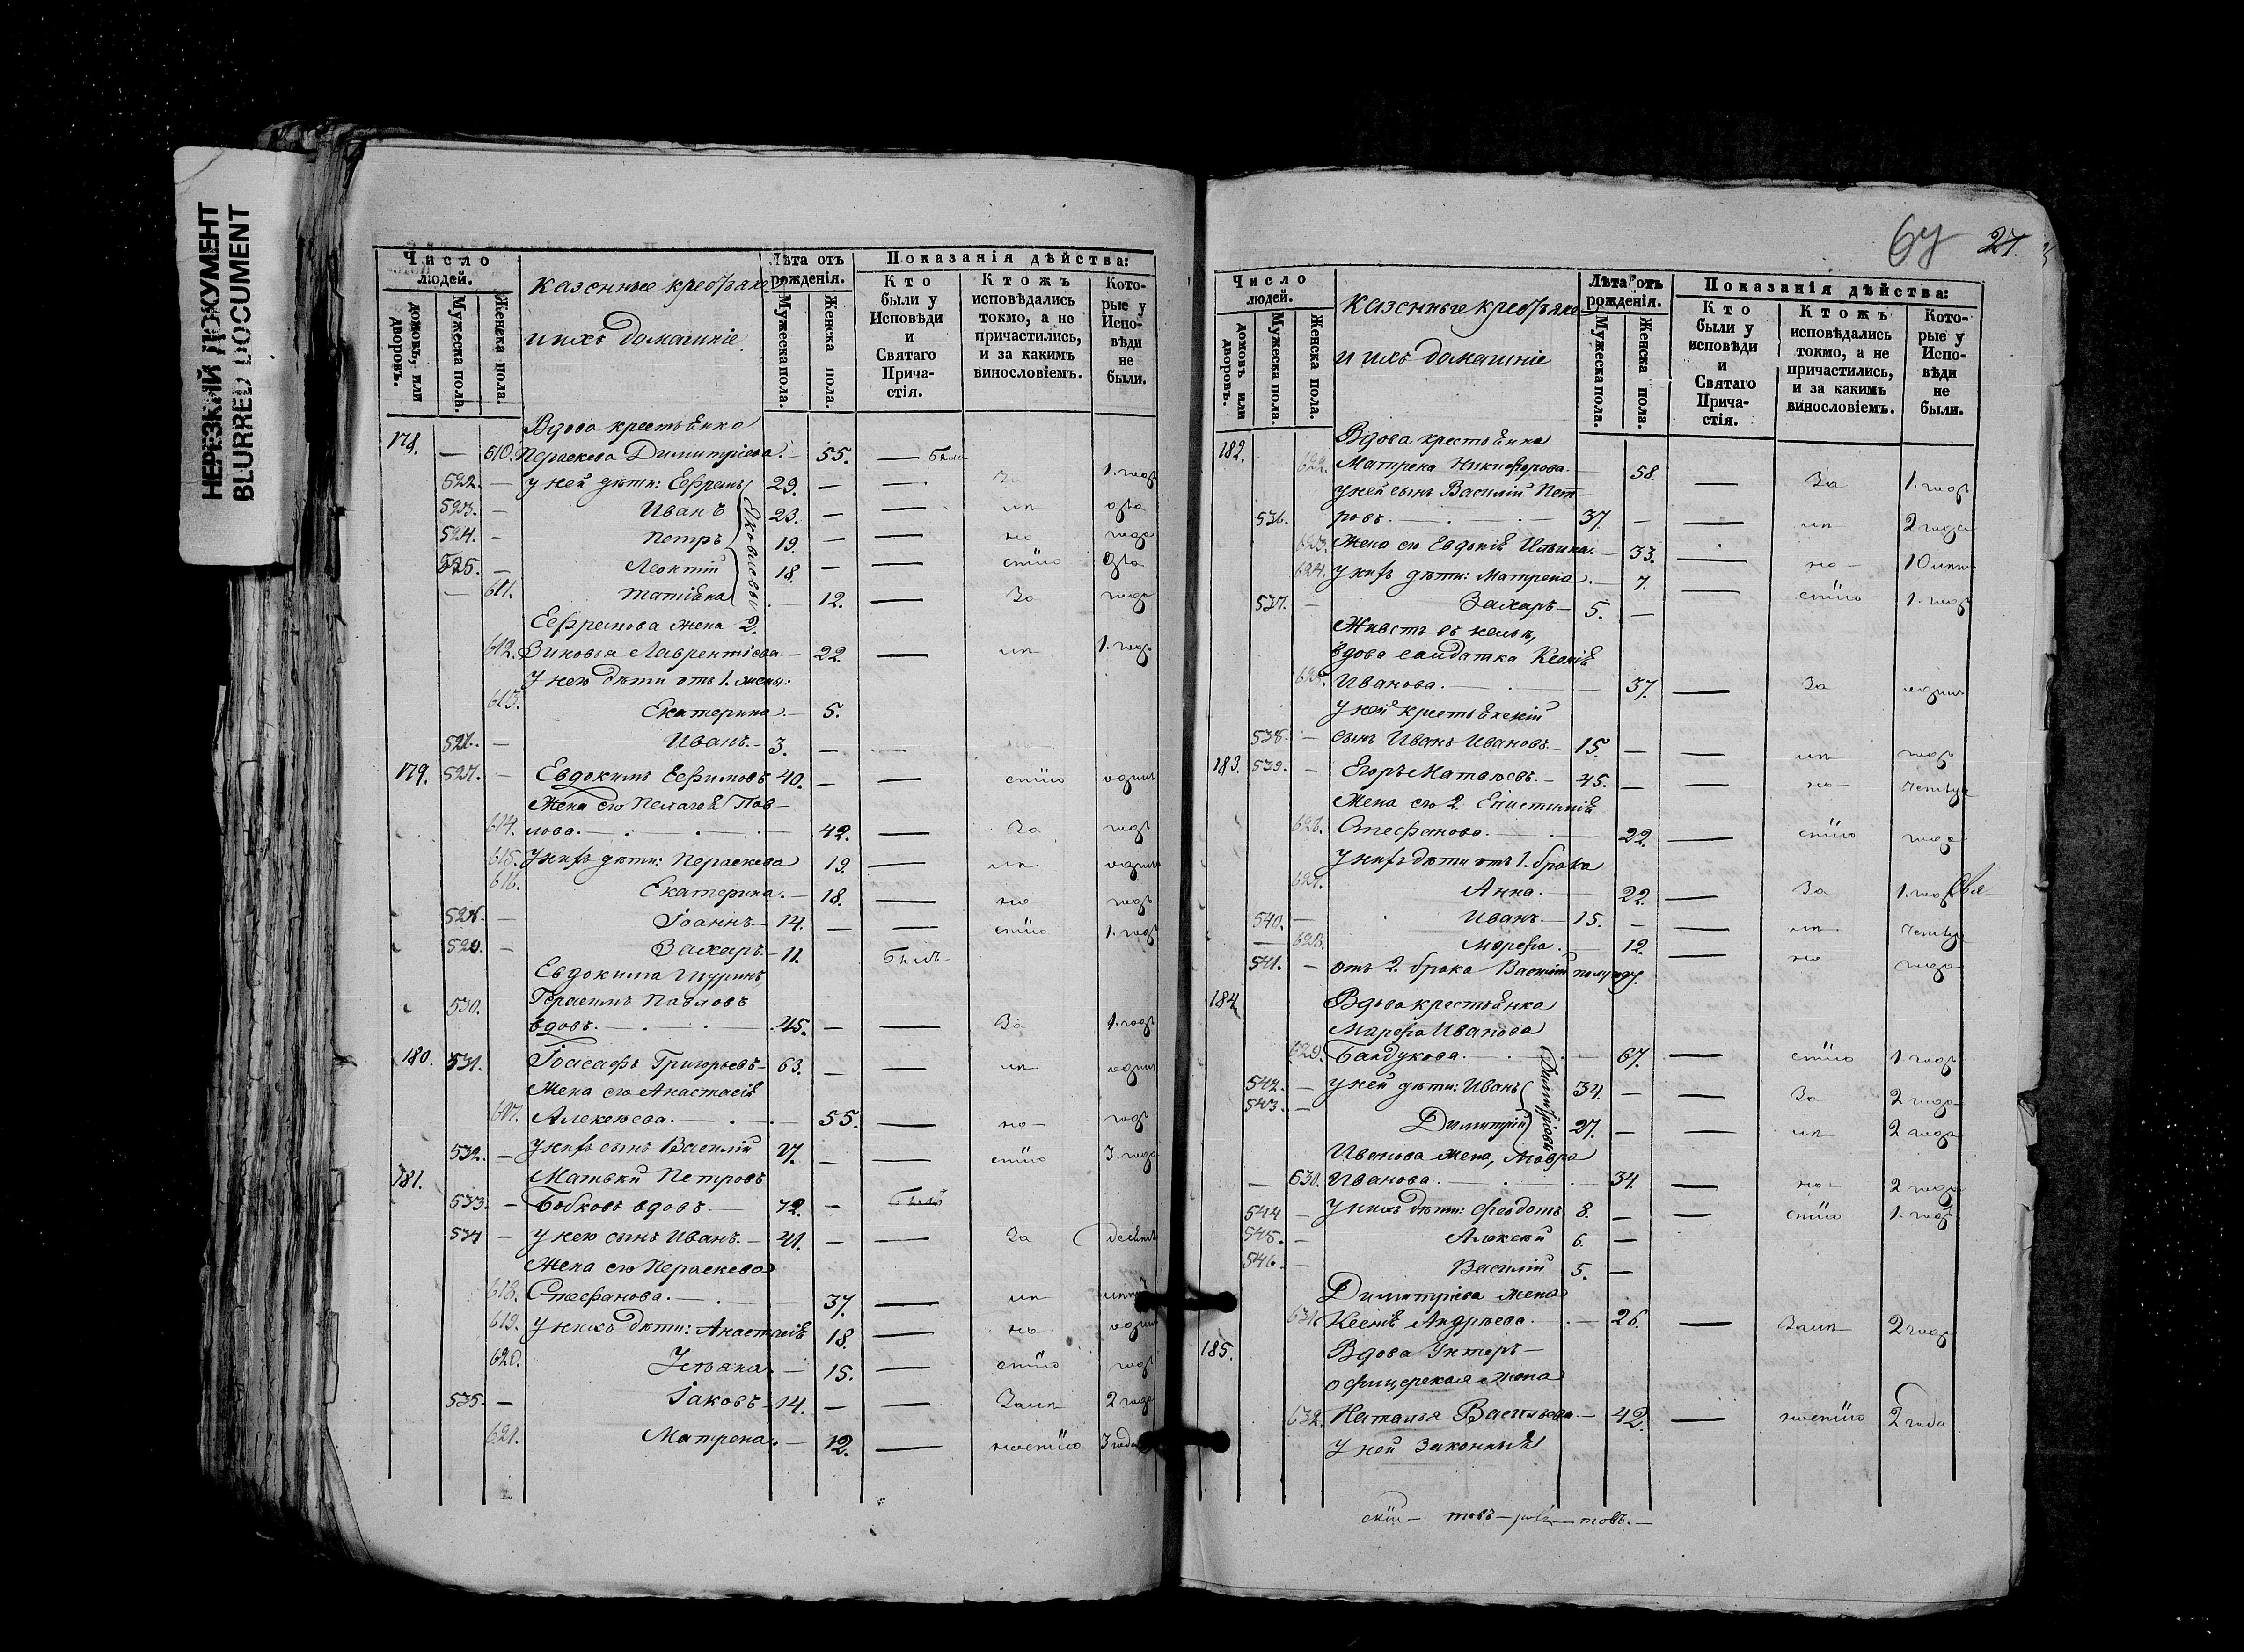 НЕРЕЗКИЙ ДОКУМЕНТ
BLURRED DOCUMENT
Число людей.
домовъ, или дворовъ.
Мужеска пола.
Женска пола.
казенные
и ихъ домашніе.
Лѣта отъ рожденія.
Мужеска пола.
Женска пола.
Показанія дѣйства:
Кто были у Исповѣди и Святаго Прича-стія.
Ктожъ исповѣдались токмо, а не причастились, и за какимъ винословіемъ.
Кото-рые у Испо-вѣди не были.
Вдова крестьянка
178. — 610. Параскева Димитріева. — 55. —
522. — у ней дѣти: Ефремъ 29. — — За 1. годъ
523. — Иванъ 23. — — ик
524. — Петръ 19. — — но года
525. — Леонтій 18. — — стію
— 611. Татіана — 12. — За года
Яковлевы
Ефремова жена 2.
612. Зиновья Лаврентіева — 22. — ик 1. годъ
У него дѣти отъ 1. жены:
613. Екатерина. — 5.
526. — Иванъ. — 3. — —
179. 527. — Евдокимъ Ефимовъ 40. — — стію одинъ
Жена его Пелагея Пав-
614. лова. — 42. — За годъ
615. У нихъ дѣти: Параскева 19. — ик одинъ
616. Екатерина. — 18. — но годъ
528. — Іоаннъ. — 14. — — стію 1. годъ
529. — Захаръ. — 11. Былъ
Евдокима шуринъ
530. Герасимъ Павловъ
вдовъ. — 45. — — За 1. годъ
180. 531. Іоасафъ Григорьевъ — 63. — — ик одинъ
Жена его Анастасія
617. Алексѣева. — 55. — но годъ
532. — У нихъ сынъ Василій 27. — — стію 3. года
181. Матвѣй Петровъ
533. — Бобковъ вдовъ. — 72. — Былъ
534 — У него сынъ Иванъ. — 41. — — За
Жена его Параскева
618. Стефанова. — 37. — ик
619. У нихъ дѣти: Анастасія 18. — но одинъ
620. Ульяна. — 15. — стію годъ
535. — Іаковъ — 14. — — Заик 2 года
621. Матрена. — 12. — ностію 3 года
64 27.
Число людей.
домовъ или дворовъ.
Мужеска пола.
Женска пола.
казенные
и ихъ домашніе
Лѣта отъ рожденія.
Мужеска пола.
Женска пола.
Показанія дѣйства:
Кто были у исповѣди и Святаго Прича-стія.
Ктожъ исповѣдались токмо, а не причастились, и за какимъ винословіемъ.
Кото-рые у Испо-вѣди не были.
182. Вдова крестьянка
622. Матрена Никифорова. — 58. — За 1. годъ
У ней сынъ Василій Пет-
536. ровъ. — 37. — — ик 2 года
623. Жена его Евдокія Ильина. — 33. — но —
624. У нихъ дѣти: Матрена. — 7. — стію 1. годъ
537. — Захаръ — 5. —
Живетъ въ
вдова салдатка Ксенія
625. Иванова. — 37. — За одинъ
У ней крестьянскій
538. — сынъ Иванъ Ивановъ. — 15. — — ик годъ
183. 539. — Егоръ Матвѣевъ. — 45. — — но —
Жена его 2. Епистимія
626. Стефанова. — 22. — стію года
У нихъ дѣти отъ 1. брака
627. Анна. — 22. — За 1. годъ
540. — Иванъ. — 15. — — ик
— 628. Марфа. — 12. — но года
541. — отъ 2. брака Василій полугоду.
184. Вдова крестьянка
Марфа Иванова
629. Балдукова. — 67. — стію 1. годъ
542. — У ней дѣти: Иванъ 34. — — За 2 года
543. — Димитрій 27. — — ик 2 года
Димитріевы
Иванова жена, Мавра
— 630. Иванова. — 34. — но — 2 года
544 — У нихъ дѣти: Феодотъ 8. — — стію 1. годъ
545. — Алексѣй 6. —
546. — Василій 5. —
Димитріева жена
631. Ксенія Андреева. — 26. — Заик 2 года
185. Вдова Унтеръ-
офицерская жена
632. Наталья Васильева — 42. — ностію 2 года
У ней законный